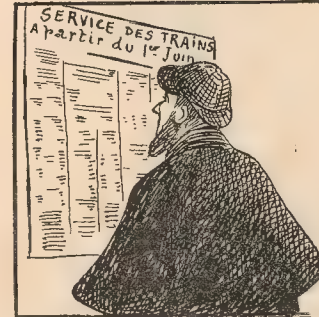 SERVICE DES TRAINS
A partir du 1er Juin